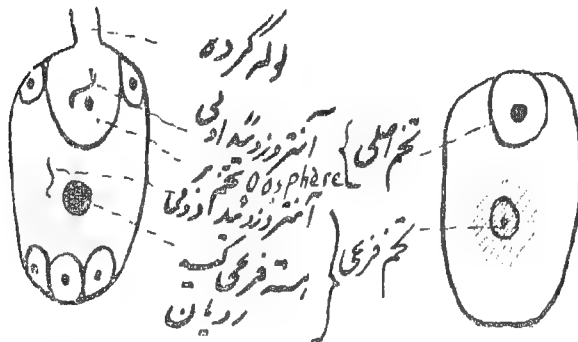 لوله گرده
آنتروزوئید اولی
تخم اصلی
Oosphare تخمزا
آنتروزوئید دومی
هسته فرعی کیسه
رویان
تخم فرعی